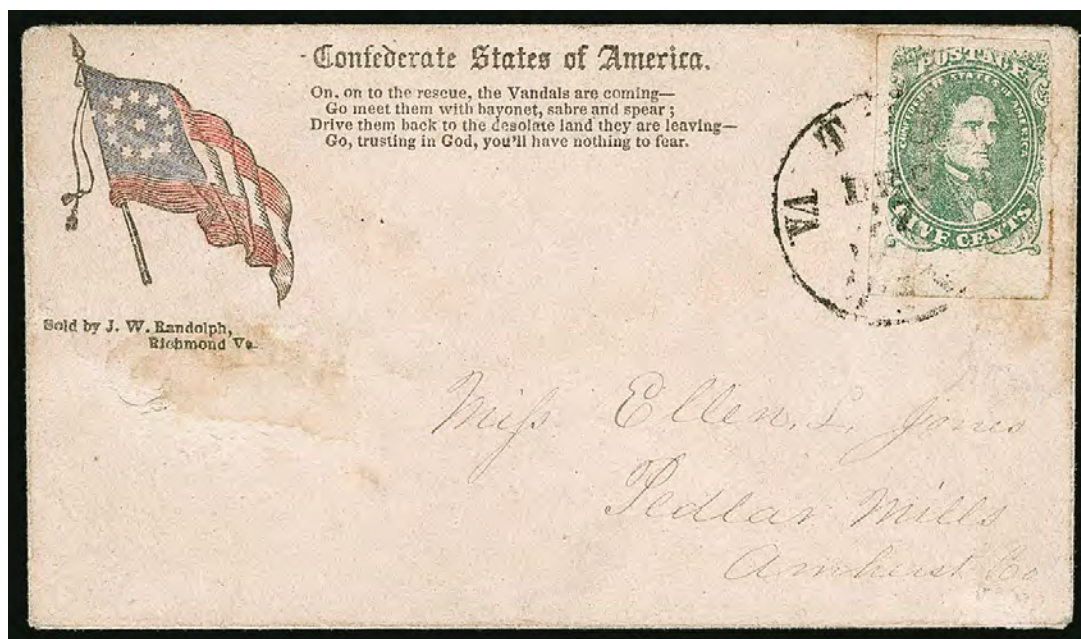 Confederate States of America.
On, on to the rescue, the Vandals are coming—
Go meet them with bayonet, sabre and spear;
Drive them back to the desolate land they are leaving—
Go, trusting in God, you'll have nothing to fear.
Sold by J. W. Randolph,
Richmond Va.
POSTAGE
CONFEDERATE STATES OF AMERICA
FIVE CENTS
VA
DEC
Miss Ellen. L. Jones
Pedlar Mills
Amherst Co